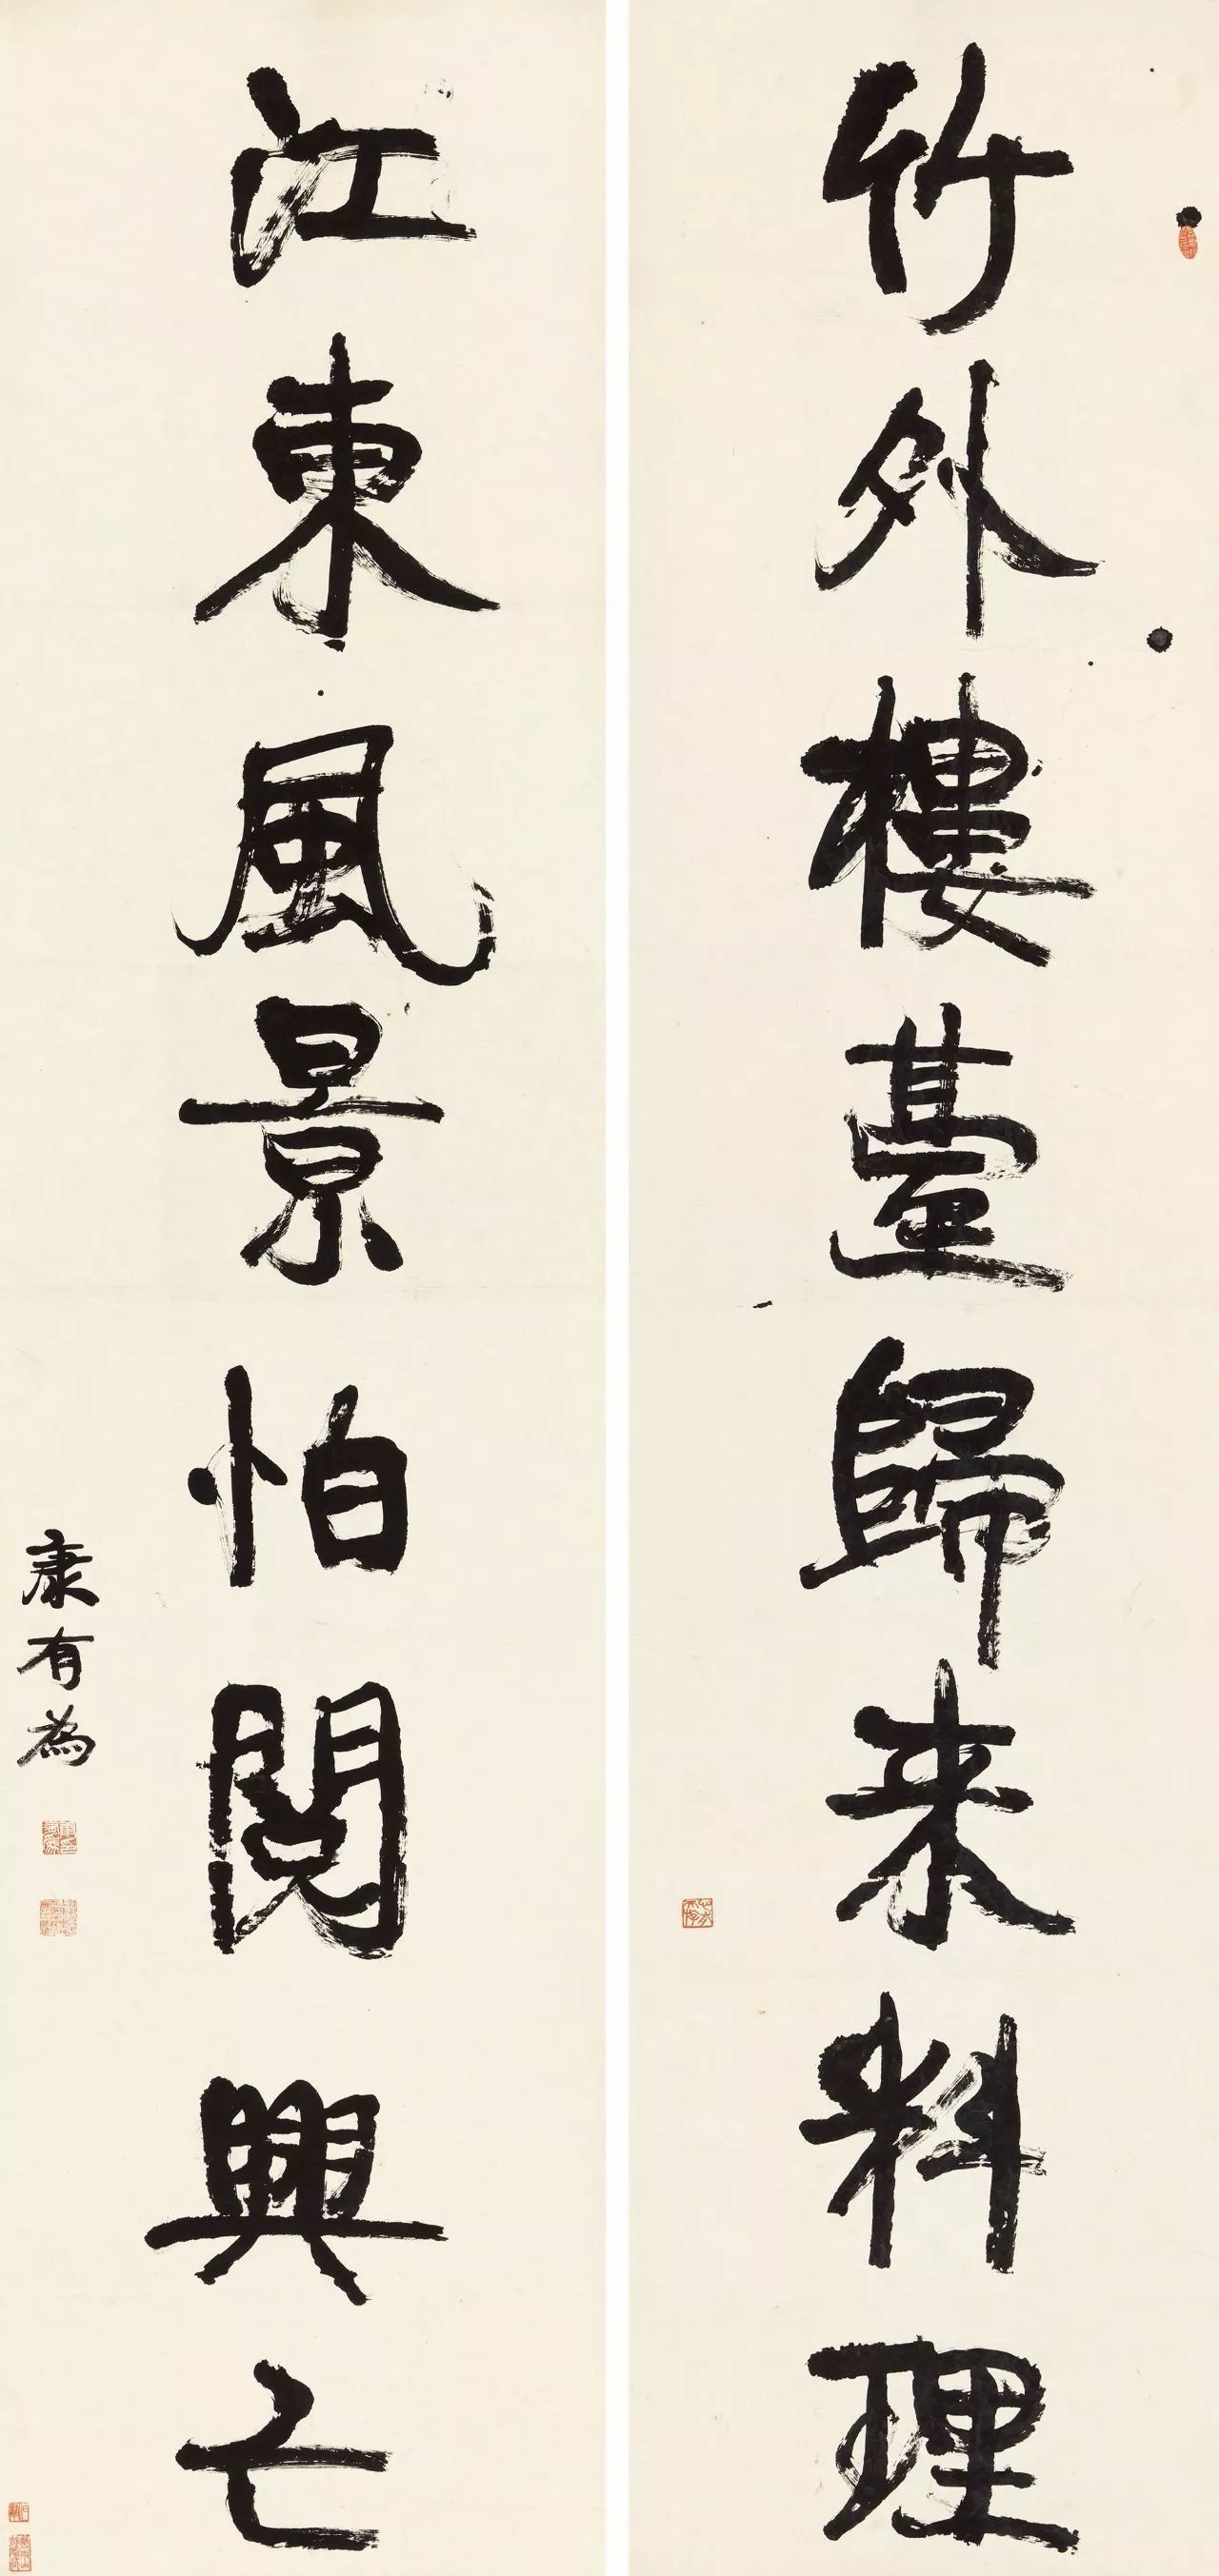 竹外樓臺歸来料理
江東風景怕閱興亡
康有為